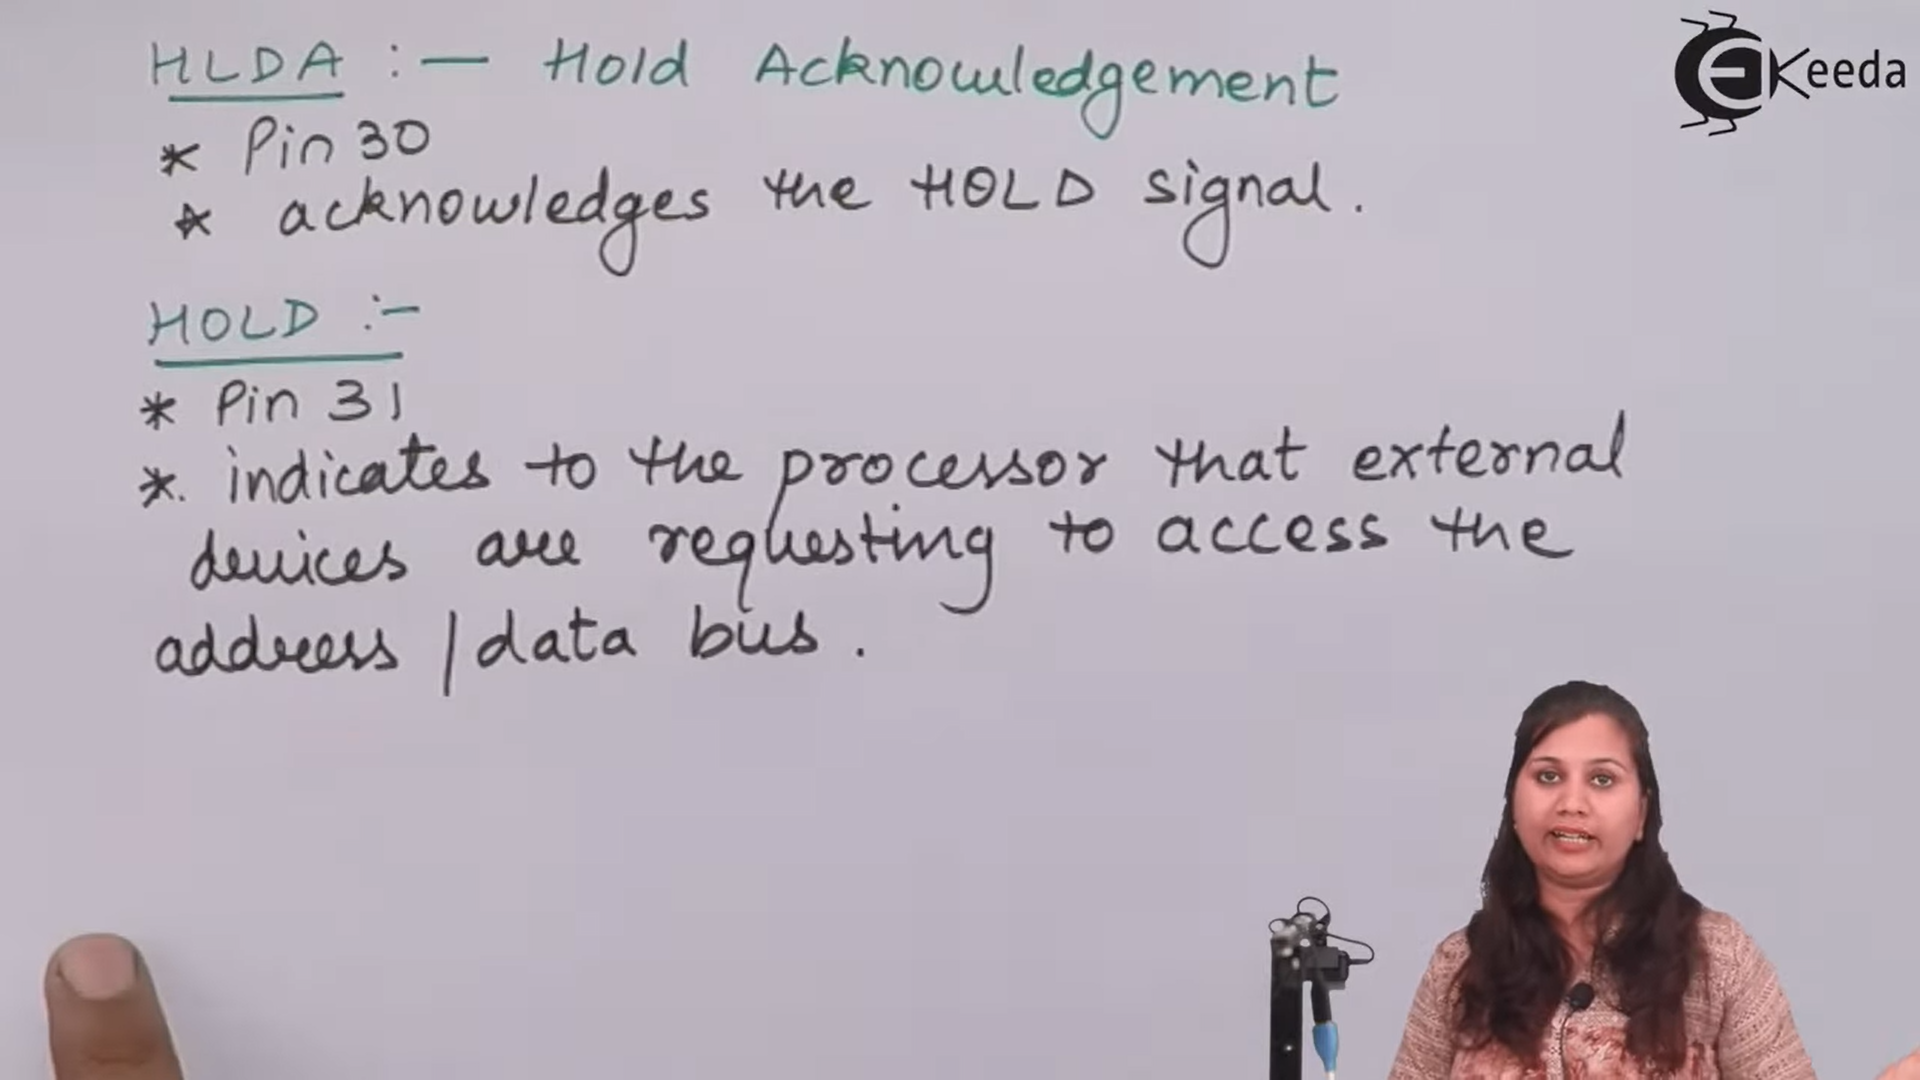 HLDA :- Hold Acknowledgement
* Pin 30
* acknowledges the HOLD signal.
HOLD :-
* Pin 31
*. indicates to the processor that external
devices are requesting to access the
address / data bus.
EKeeda